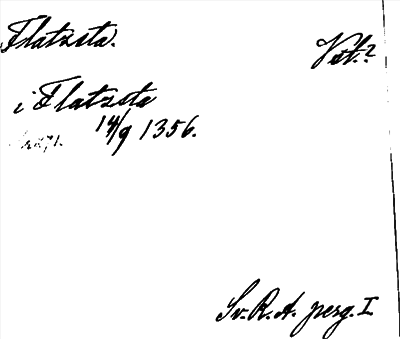 Flatzeta.
Vet.?
i Flatzeta
14/9 1356.
Sv. R. A. perg. I